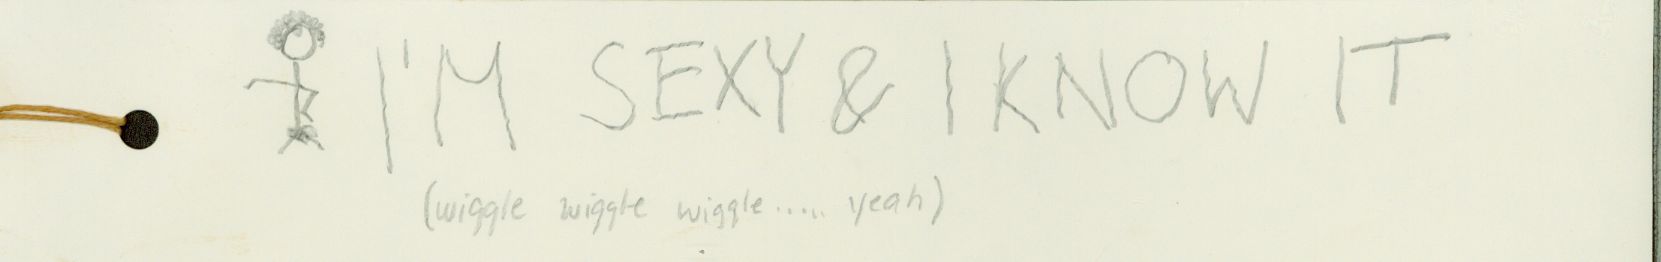 I'M SEXY & I KNOW IT
(wiggle wiggle wiggle..... yeah)